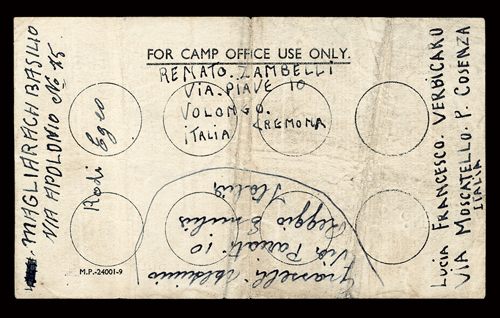 FOR CAMP OFFICE USE ONLY.
REMATO. ZAMBELLI
VIA. PIAVE 10
VOLONGO.
ITALIA CREMONA
MAGLIARACHI BASILIO
VIA APOLONIO No 75
Rodi Egeo
LUCIA FRANCESCO. VERBICARU
VIA MOSCATELLO. P. COSENZA
ITALIA
Frasselli
Via Pariati 10
Reggio Emilia
Italia
M.P.-24001-9